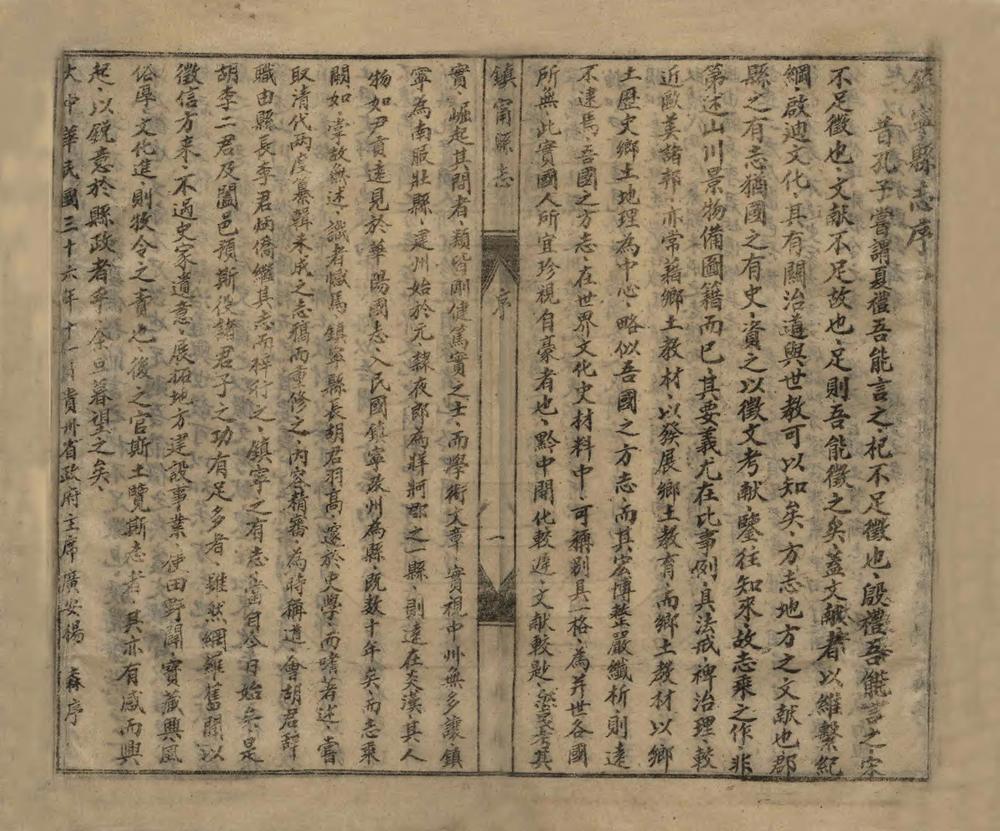 鎮寧縣志序
昔孔子嘗謂夏禮吾能言之杞不足徵也、殷禮吾能言之宋
不足徵也、文献不足故也、足則吾能徵之矣、蓋文献者以維繫紀
綱、啟迪文化、具有關治道與世教可以知矣、方志地方之文献也、郡
縣之有志猶國之有史、資之以徵文考献、鑒往知來、故志乘之作、非
第述山川景物備圖籍而已、其要義尤在比事例、具法戒、裨治理、較
近歐美諸邦、亦常藉鄉土教材、以發展鄉土教育、而鄉土教材以鄉
土歷史鄉土地理為中心、略似吾國之方志、而其宏博整嚴纖析則遠
不逮焉、吾國之方志、在世界文化史材料中、可稱別具一格、為並世各國
所無、此實國人所宜珍視自豪者也、黔中開化較遲、文献較尠、然其
鎮甯縣志
序
一
實、崛起其間者、類皆剛健篤實之士、而學術文章、實視中州無多讓、鎮
寧為南服壯縣、建州始於元、隸夜郎為牂牁郡之一縣、則遠在炎漢、其人
物如尹貢遠見於華陽國志、入民國鎮寧改州為縣、既数十年矣、而志乘
闕如、掌故無述、識者憾焉、鎮寧縣長胡君羽高邃於史學、而嗜著述、嘗
取清代两度纂輯未成之志稿而重修之、内容精審、為時稱道、會胡君辞
職由縣長李君炳僑繼其志而梓行之、鎮寧之有志、當自今日始矣、是
胡李二君及闔邑預斯役諸君子之功有足多者、雖然網羅舊聞以
徵信方來、不過史家遺意、展拓地方建設事業、使田野闢、寶藏興、風
俗厚、文化進、則牧令之責也、後之官斯土覽斯志者、其亦有感而興
起、以銳意於縣政者乎、余日暮望之矣、
大中華民國三十六年十一月貴州省政府主席廣安楊 森序